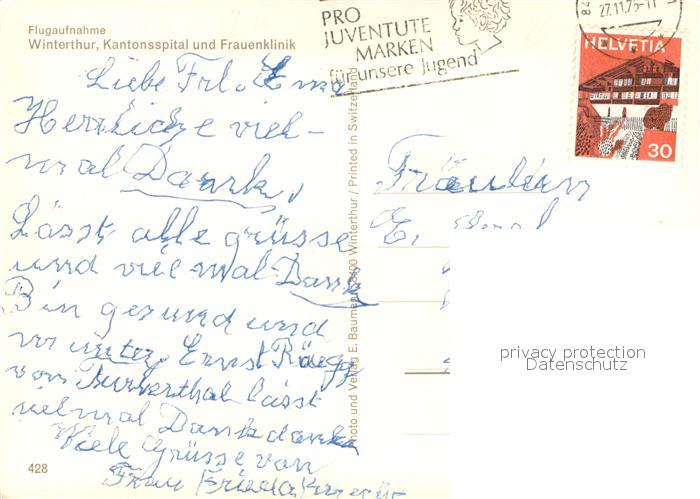 Flugaufnahme
Winterthur, Kantonsspital und Frauenklinik
PRO
JUVENTUTE
MARKEN
für unsere Jugend
27.11.75-11
HELVETIA
30
Liebe Frl. Ema
Herrliche viel-
mal Dank,
Lässt alle grüsse
und viel mal Dank
Bin gesund und
munter, Ernst Rüegg
von Turbenthal lässt
vielmal Dank danke
Viele Grüsse von
Frau Frieda
Fräulein
E.
Photo und Verlag E. Baumann, 8400 Winterthur / Printed in Switzerland
privacy protection
Datenschutz
428